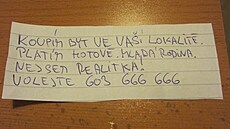 KOUPÍM BYT VE VAŠÍ LOKALITĚ.
PLATÍM HOTOVĚ. MLADÁ RODINA.
NEJSEM REALITKA!
VOLEJTE 603 666 666